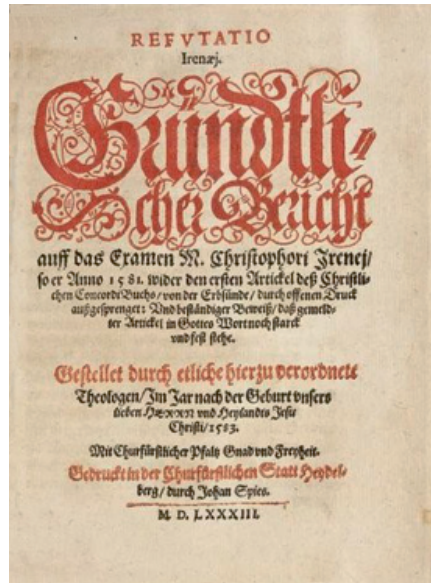 REFVTATIO
Irenæj.
Gründtli-
cher Bericht
auff das Examen M. Christophori Irenej/
so er Anno 1581. wider den ersten Artickel deß Christli-
chen ConcordiBuchs/von der Erbsünde/durch offenen Druck
außgesprenget: Vnd beständiger Beweiß/daß gemeld-
ter Artickel in Gottes Wort noch starck
vnd fest stehe.
Gestellet durch etliche hierzu verordnete
Theologen/Im Jar nach der Geburt vnsers
lieben HERRN vnd Heylandts Jesu
Christi/1583.
Mit Churfürstlicher Pfaltz Gnad vnd Freyheit.
Gedruckt in der Churfürstlichen Statt Heydel-
berg/durch Johan Spies.
M. D. LXXXIII.